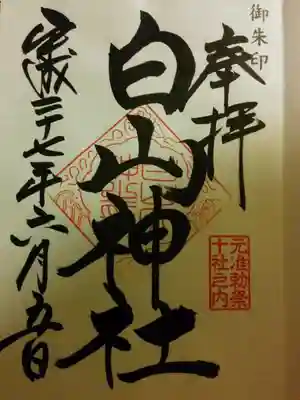 御朱印
奉拝
元准勅祭
十社之内
白山神社
平成二十七年六月五日